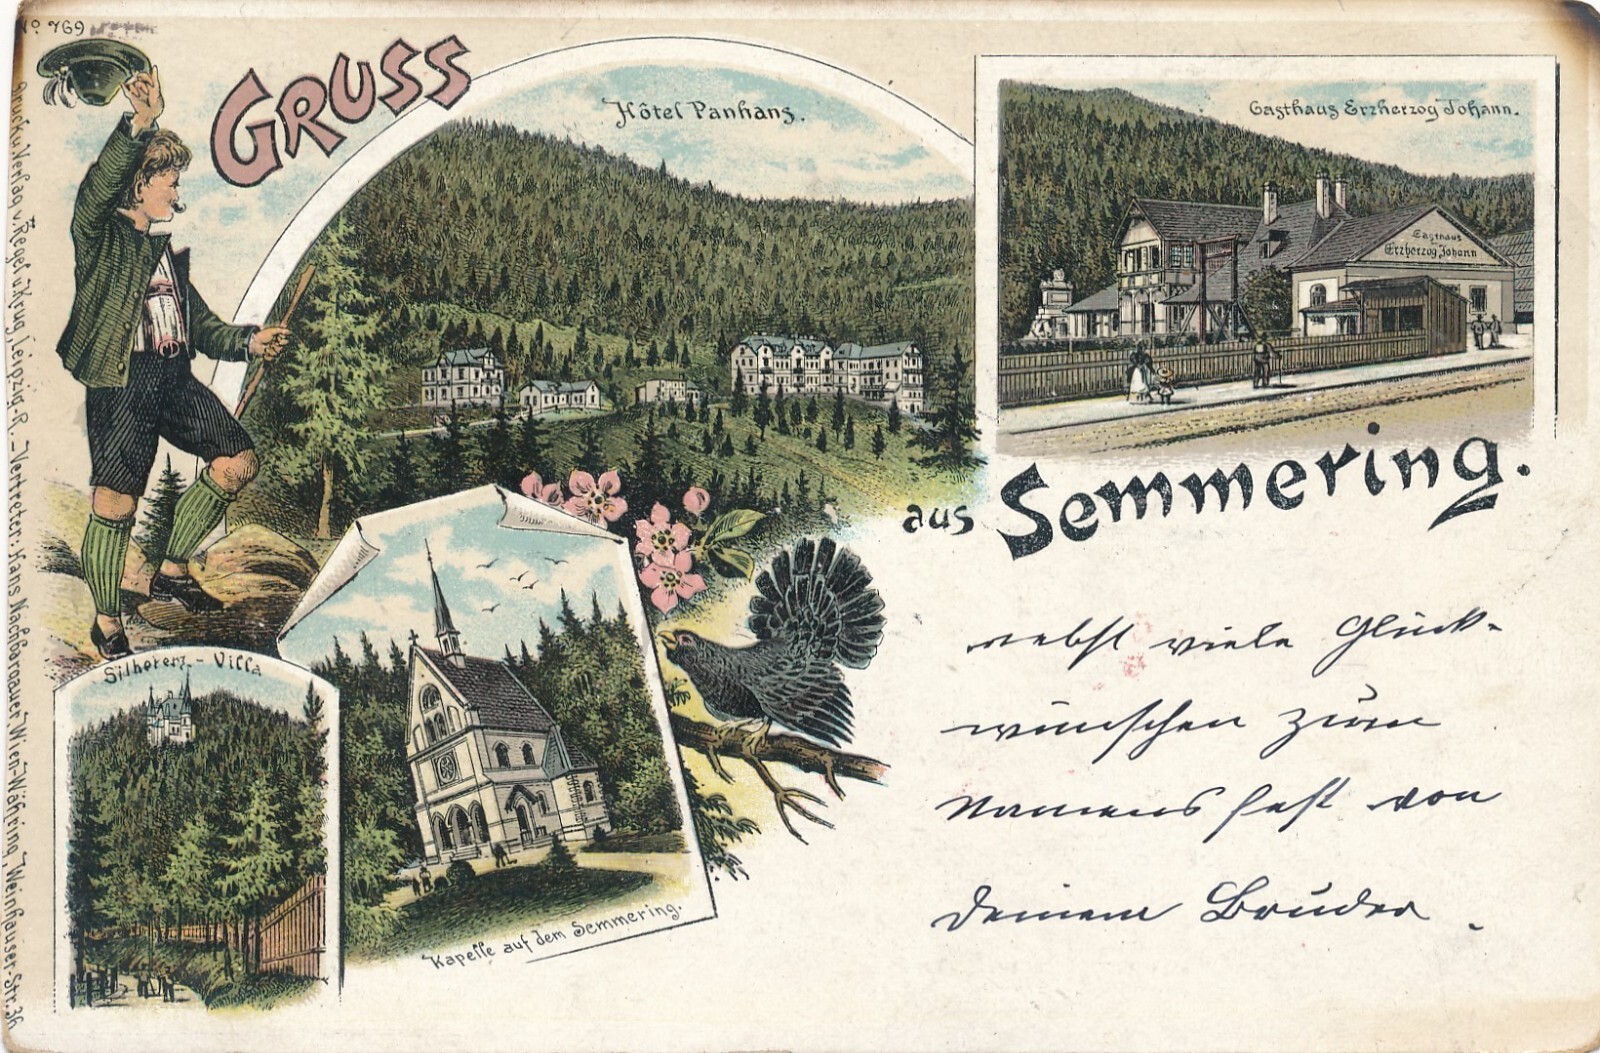 No 769
GRUSS
aus Semmering.
Hôtel Panhans.
Gasthaus Erzherzog Johann.
Gasthaus
Erzherzog Johann
Silberer-Villa
Kapelle auf dem Semmering.
Druck u. Verlag v. Regel u. Krug, Leipzig-R. – Vertreter: Hans Nachbargauer Wien-Währing, Weinhauser-Str. 36
nebst viele Glück-
wünschen zum
Namensfest von
Deinem Bruder.